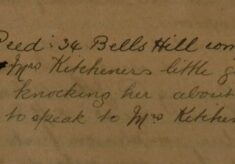 Reed: 34 Bells Hill com
Mrs Kitcheners little g
knocking her about
to speak to Mrs Kitchen